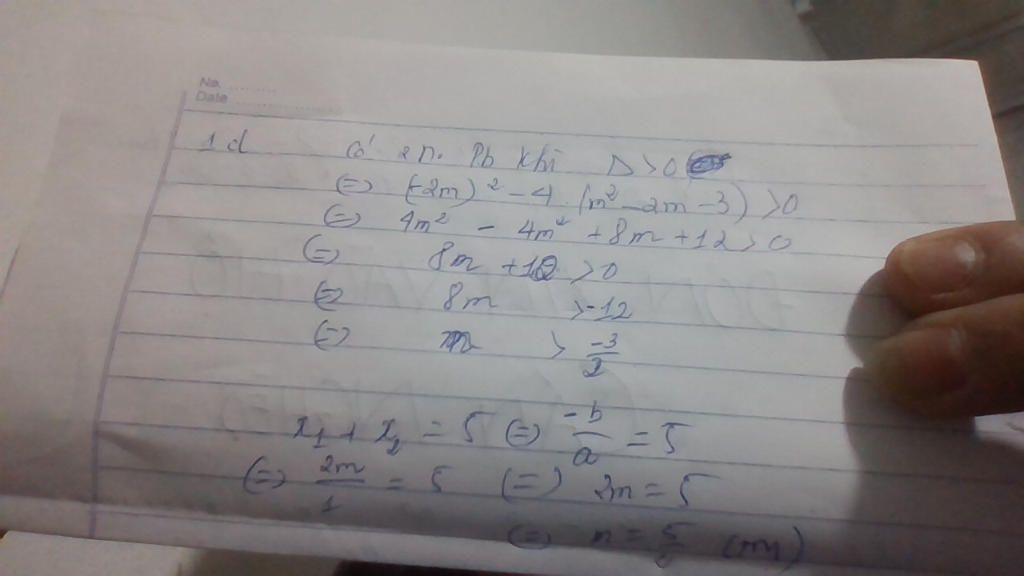 No. ..........
Date ....................
1 d có 2 n. Pb khi Δ > 0
(=) (-2m)² - 4 . (m² - 2m - 3) > 0
(=) 4m² - 4m² + 8m + 12 > 0
(=) 8m + 12 > 0
(=) 8m > -12
(=) m > -3/2
x₁ + x₂ = 5 (=) -b/a = 5
(=) 2m/1 = 5 (=) 2m = 5
(=) m = 5/